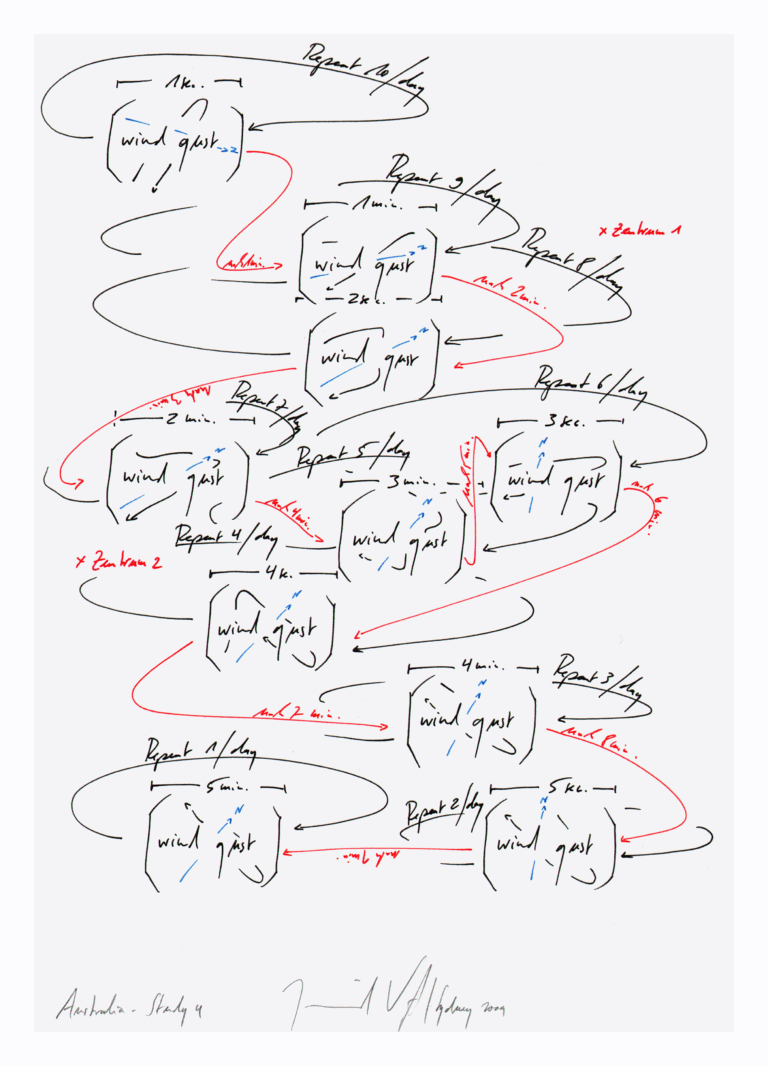 Repeat 10/day
1 sec.
wind gust
N
Repeat 9/day
1 min.
nach 1 min.
wind gust
N
× Zentrum 1
Repeat 8/day
nach 2 min.
2 sec.
wind gust
N
nach 3 min.
Repeat 7/day
2 min.
wind gust
N
Repeat 6/day
3 sec.
wind gust
N
nach 5 min.
Repeat 5/day
3 min.
nach 4 min.
wind gust
N
nach 6 min.
Repeat 4/day
× Zentrum 2
4 sec.
wind gust
N
nach 7 min.
4 min.
Repeat 3/day
wind gust
N
nach 8 min.
Repeat 1/day
5 min.
wind gust
N
Repeat 2/day
5 sec.
wind gust
N
nach 9 min.
Australia - Study 4
Sydney 2009